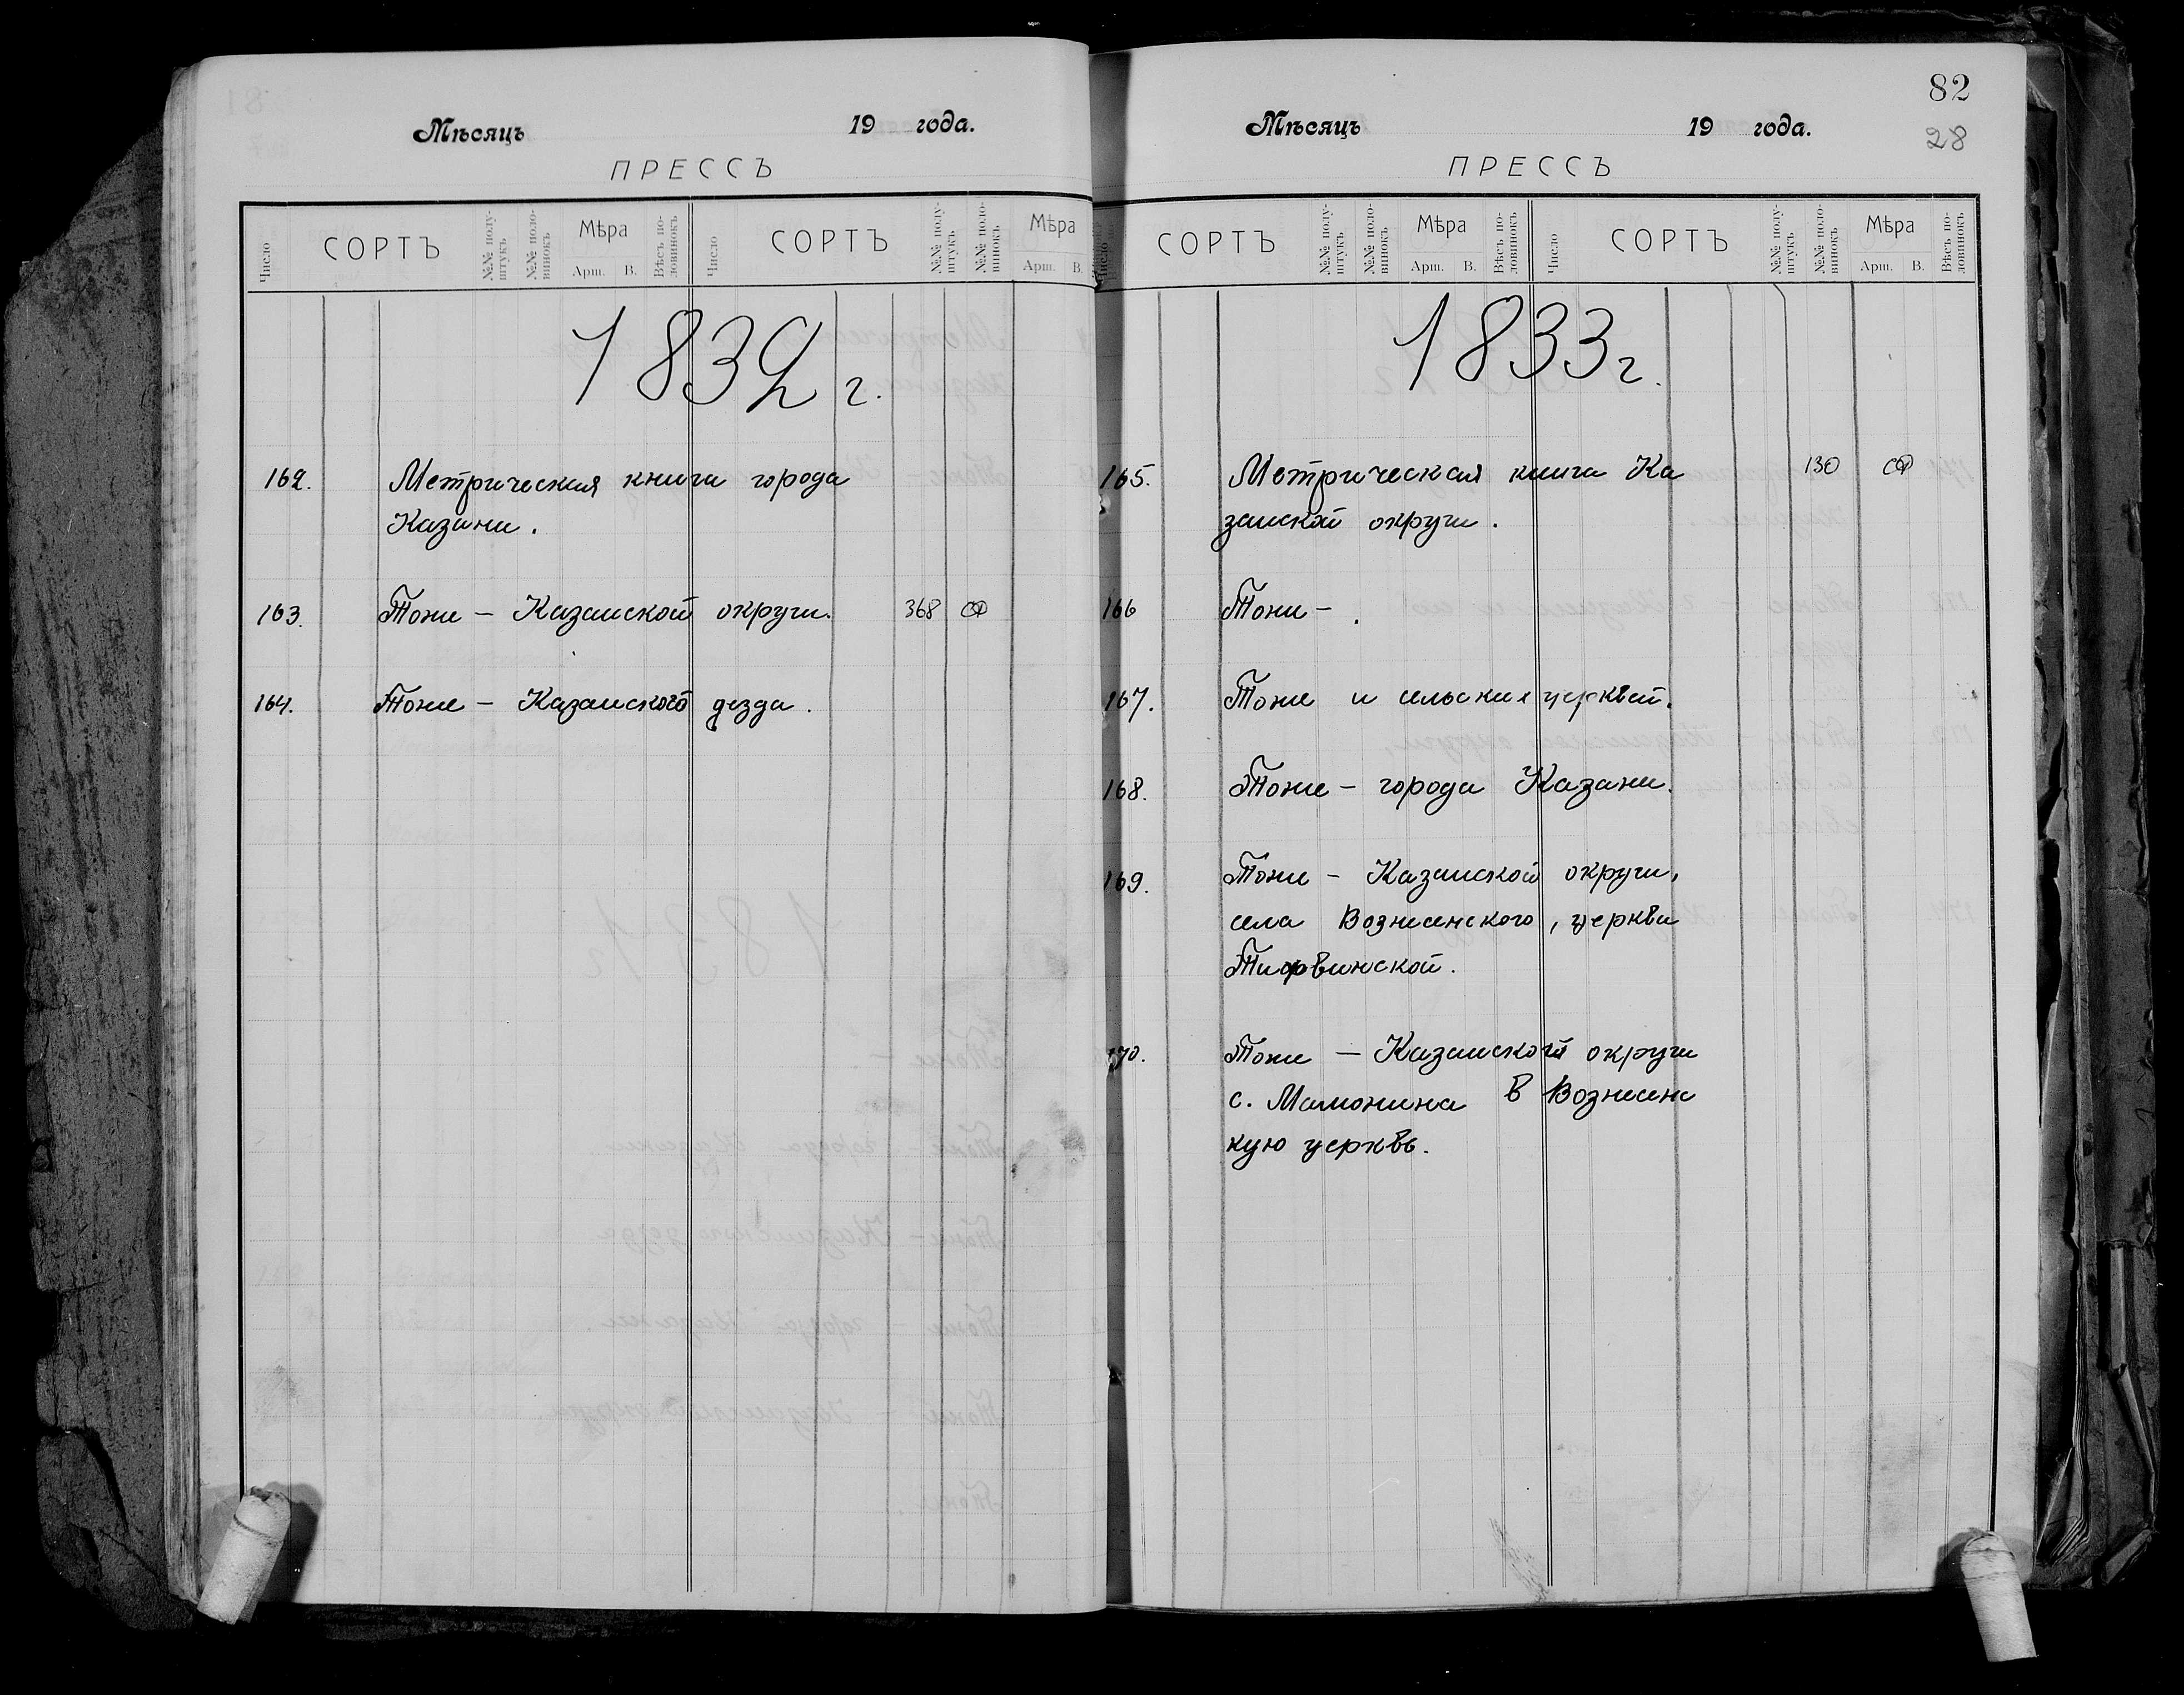 Мѣсяцъ 19 года.
ПРЕССЪ
Число СОРТЪ №№ полу-штукъ №№ поло-винокъ Мѣра Арш. В. Вѣсъ по-ловинокъ Число СОРТЪ №№ полу-штукъ №№ поло-винокъ Мѣра Арш. В.
1832 г.
162. Метрическая книга города
Казани.
163. Тоже – Казанской округи. 368 сф
164. Тоже – Казанского уезда.
82
28
Мѣсяцъ 19 года.
ПРЕССЪ
Число СОРТЪ №№ полу-штукъ №№ поло-винокъ Мѣра Арш. В. Вѣсъ по-ловинокъ Число СОРТЪ №№ полу-штукъ №№ поло-винокъ Мѣра Арш. В. Вѣсъ по-ловинокъ
1833 г.
165. Метрическая книга Ка 130 сф
занской округи.
166 Тоже – .
167. Тоже и сельских церквей.
168. Тоже – города Казани.
169. Тоже – Казанской округи,
села Вознесенского, церкви
Тифвинской.
170. Тоже – Казанской округи
с. Мамонина в Вознесенс
кую церквь.